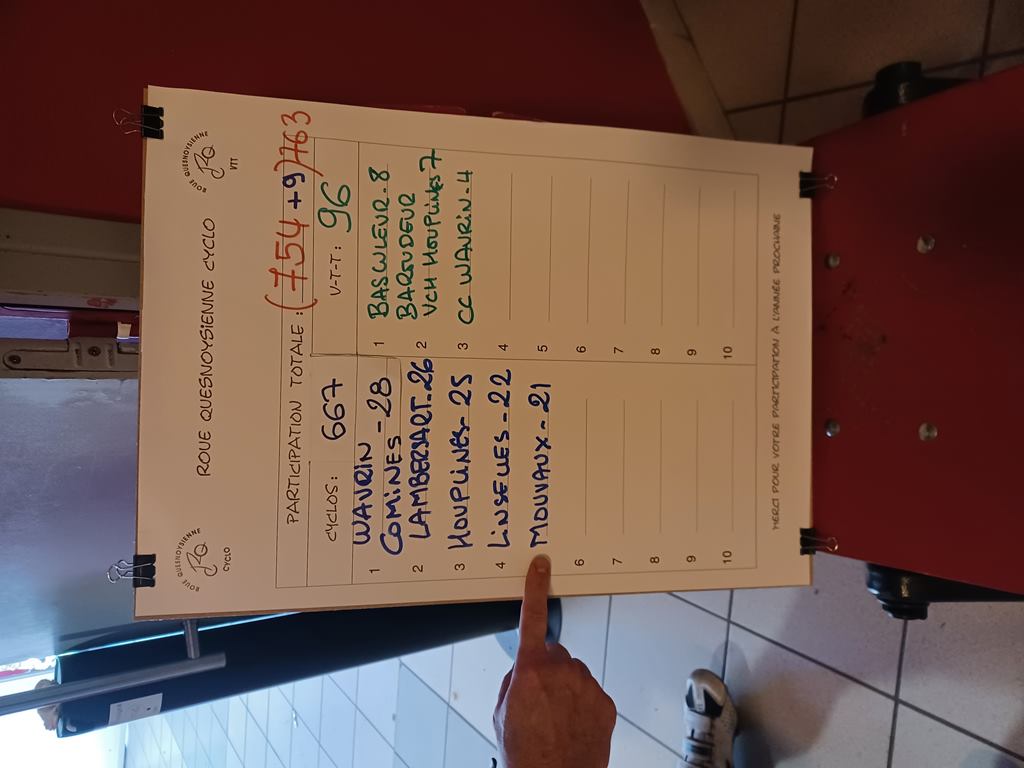 ROUE QUESNOYSIENNE
RQ
CYCLO
ROUE QUESNOYSIENNE CYCLO
ROUE QUESNOYSIENNE
RQ
VTT
PARTICIPATION TOTALE : (754 +9) 763
CYCLOS: 667
V-T-T: 96
1 WAVRIN
COMINES - 28
2 LAMBERSART - 26
3 HOUPLINES - 25
4 LINSELLES - 22
5 MOUVAUX - 21
6
7
8
9
10
1 BASWLEUR - 8
BAROUDEUR
2 VCH HOUPLINES 7
3 CC WAVRIN - 4
4
5
6
7
8
9
10
MERCI POUR VOTRE PARTICIPATION À L'ANNÉE PROCHAINE